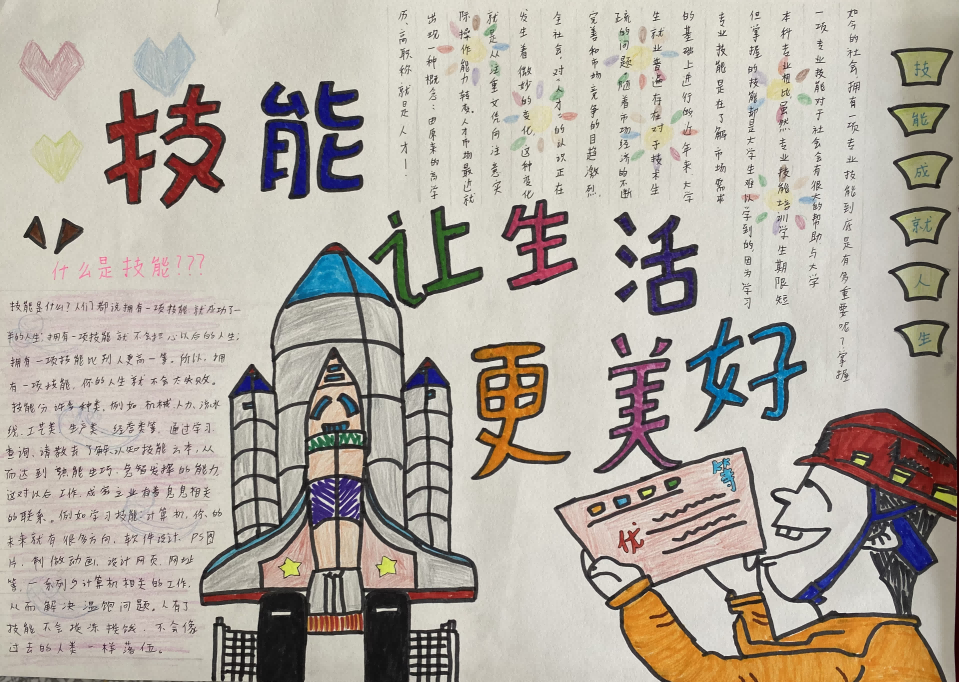 技能
让生活
更美好
技
能
成
就
人
生
如今的社会,拥有一项专业技能到底是有多重要呢?掌握
一项专业技能对于社会会有很大的帮助与大学
本科专业相比虽然专业技能培训学生期限短
但掌握的技能却是大学生难以学到的因为学习
专业技能是在了解市场需求
的基础上进行的近年来大学
生就业普遍存在对于技术生
疏的问题随着市场经济的不断
完善和市场竞争的日趋激烈
全社会对“人才”的认识正在
发生着微妙的变化,这种变化
就是从注重文凭向注意实
际操作能力转变。人才市场最近就
出现一种概念:由原来的高学
历、高职称就是人才!
什么是技能???
技能是什么?人们都说拥有一项技能就成功了一
半的人生;拥有一项技能就不会担心以后的人生;
拥有一项技能比别人更高一等。所以,拥
有一项技能,你的人生就不会太失败。
技能分许多种类。例如机械人力、流水
线、工艺类、生产类、经营类等,通过学习
查询、请教去了解认知技能云本,从
而达到熟能生巧,
这对以后工作,成家立业有着息息相关
的联系。例如学习技能:计算机,你的
未来就有很多方向,软件设计,PS图
片,制做动画,设计网页,网址
等,一系列与计算机相关的工作,
从而解决温饱问题,人有了
技能不会挨冻挨饿,不会像
过去的人类一样落伍。
优